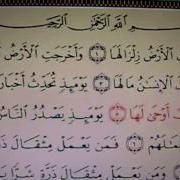 بِسْمِ ٱللَّهِ ٱلرَّحْمَٰنِ ٱلرَّحِيمِ
ٱلْأَرْضُ زِلْزَالَهَا ١ وَأَخْرَجَتِ ٱلْأَرْضُ
ٱلْإِنسَٰنُ مَالَهَا ٣ يَوْمَئِذٍ تُحَدِّثُ أَخْبَارَ
أَوْحَىٰ لَهَا ٥ يَوْمَئِذٍ يَصْدُرُ ٱلنَّاسُ
ٱعْمَٰلَهُمْ ٦ فَمَن يَعْمَلْ مِثْقَالَ ذَ
وَمَن يَعْمَلْ مِثْقَالَ ذَرَّةٍ شَرًّا يَ